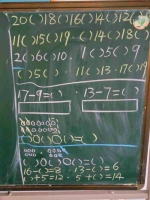 20()18()16()14()12()
11()15()19·()14()18()
2()6()10. 1()5()9
()5() 11()13·17()19
17-9=() 13-7=()
()○()○()=()
()○()○()=()
16-()=8 13-()=6
()+5=12 5+()=14